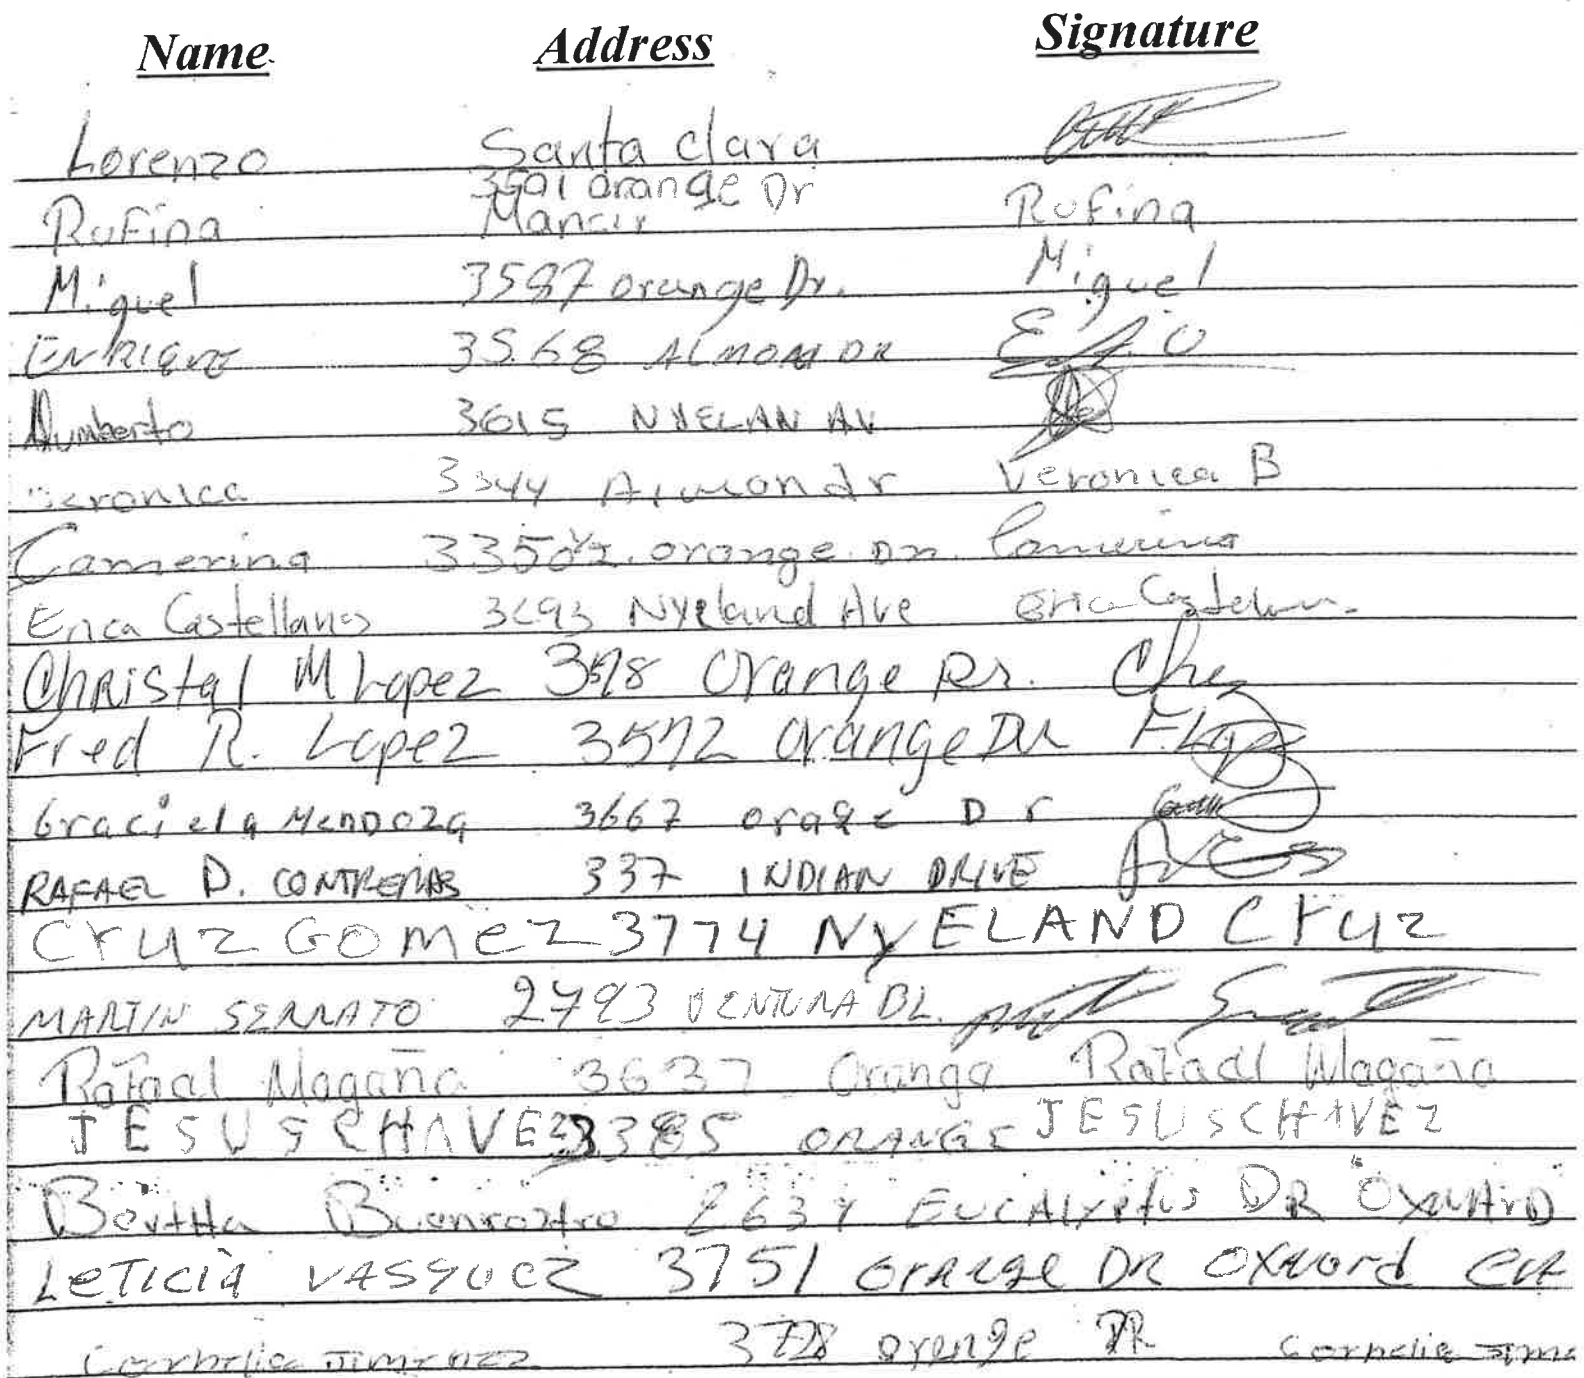 Name Address Signature
Lorenzo Santa clara
3501 orange Dr
Rufina Rufina
Miguel 3587 orange Dr. Miguel
ENRIQUE 3568 ALMOM DR
Humberto 3615 NYELAN AV
Veronica 3344 Almon dr Veronica B
Camerina 3350½ orange Dr. Camerina
Erica Castellanos 3693 Nyeland Ave Erica
Christal M Lopez Orange Dr.
Fred R. Lopez 3572 Orange Dr F. Lopez
Graciela MenDoza 3667 orage Dr
RAFAEL D. CONTRERAS 337 INDIAN DRIVE
Cruz Gomez 3774 NyELAND Cruz
MARTIN SERRATO 2793 VENTURA BL.
Rafael Magaña 3637 Orange Rafael Magaña
JESUS CHAVEZ 3385 ORANGE JESUS CHAVEZ
Bertha Buenrostro 2634 EUCAlyptus DR OXNARD
LeTICIA VASQUEZ 3751 Orange DR Oxnord
Cornelia Jimenez 3728 orenge DR Cornelia